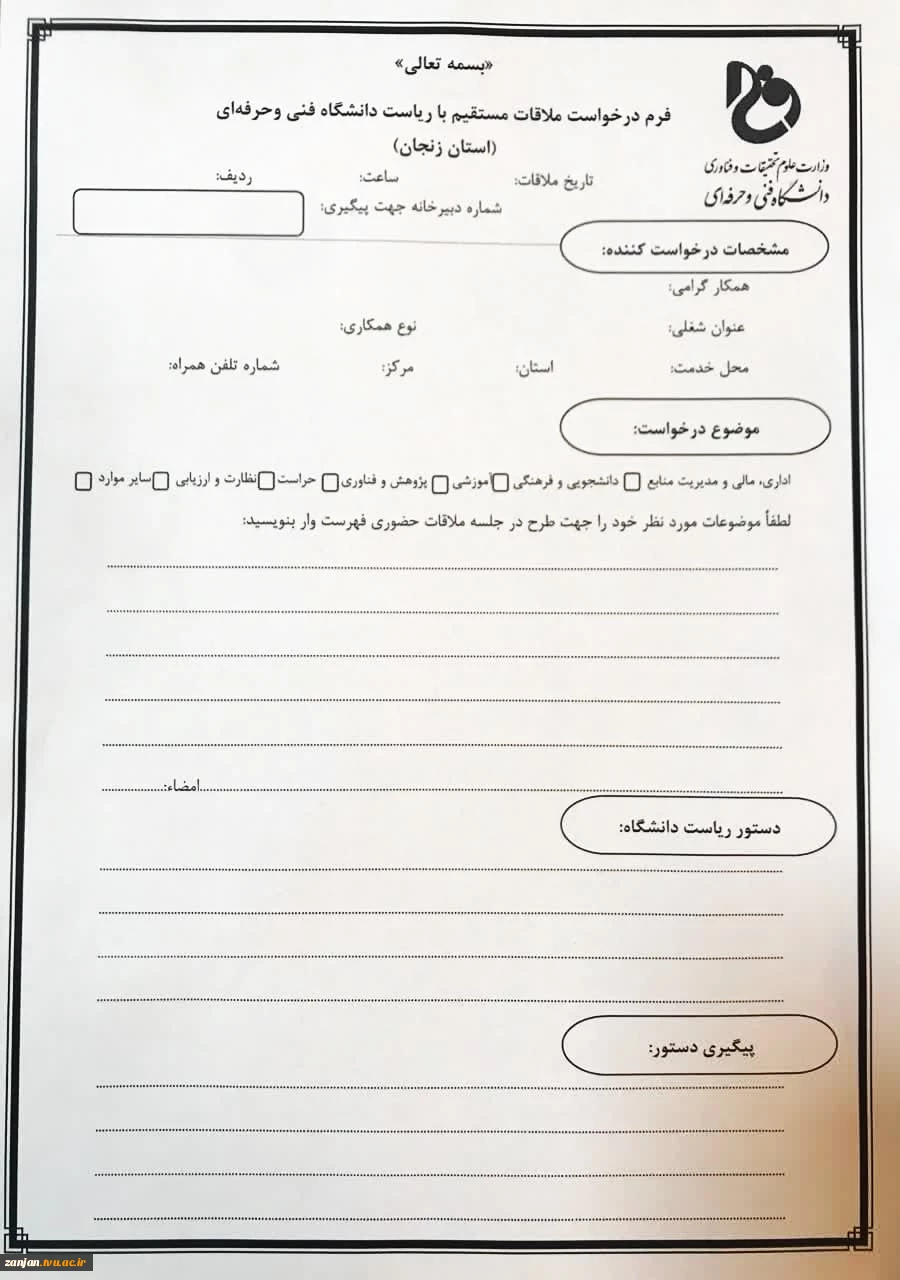 «بسمه تعالی»
فرم درخواست ملاقات مستقیم با ریاست دانشگاه فنی وحرفه‌ای
(استان زنجان)
وزارت علوم تحقیقات و فناوری
دانشگاه فنی و حرفه‌ای
تاریخ ملاقات: ساعت: ردیف:
شماره دبیرخانه جهت پیگیری:
مشخصات درخواست کننده:
همکار گرامی:
عنوان شغلی: نوع همکاری:
محل خدمت: استان: مرکز: شماره تلفن همراه:
موضوع درخواست:
اداری، مالی و مدیریت منابع دانشجویی و فرهنگی آموزشی پژوهش و فناوری حراست نظارت و ارزیابی سایر موارد
لطفاً موضوعات مورد نظر خود را جهت طرح در جلسه ملاقات حضوری فهرست وار بنویسید:
امضاء:
دستور ریاست دانشگاه:
پیگیری دستور:
zanjan.tvu.ac.ir